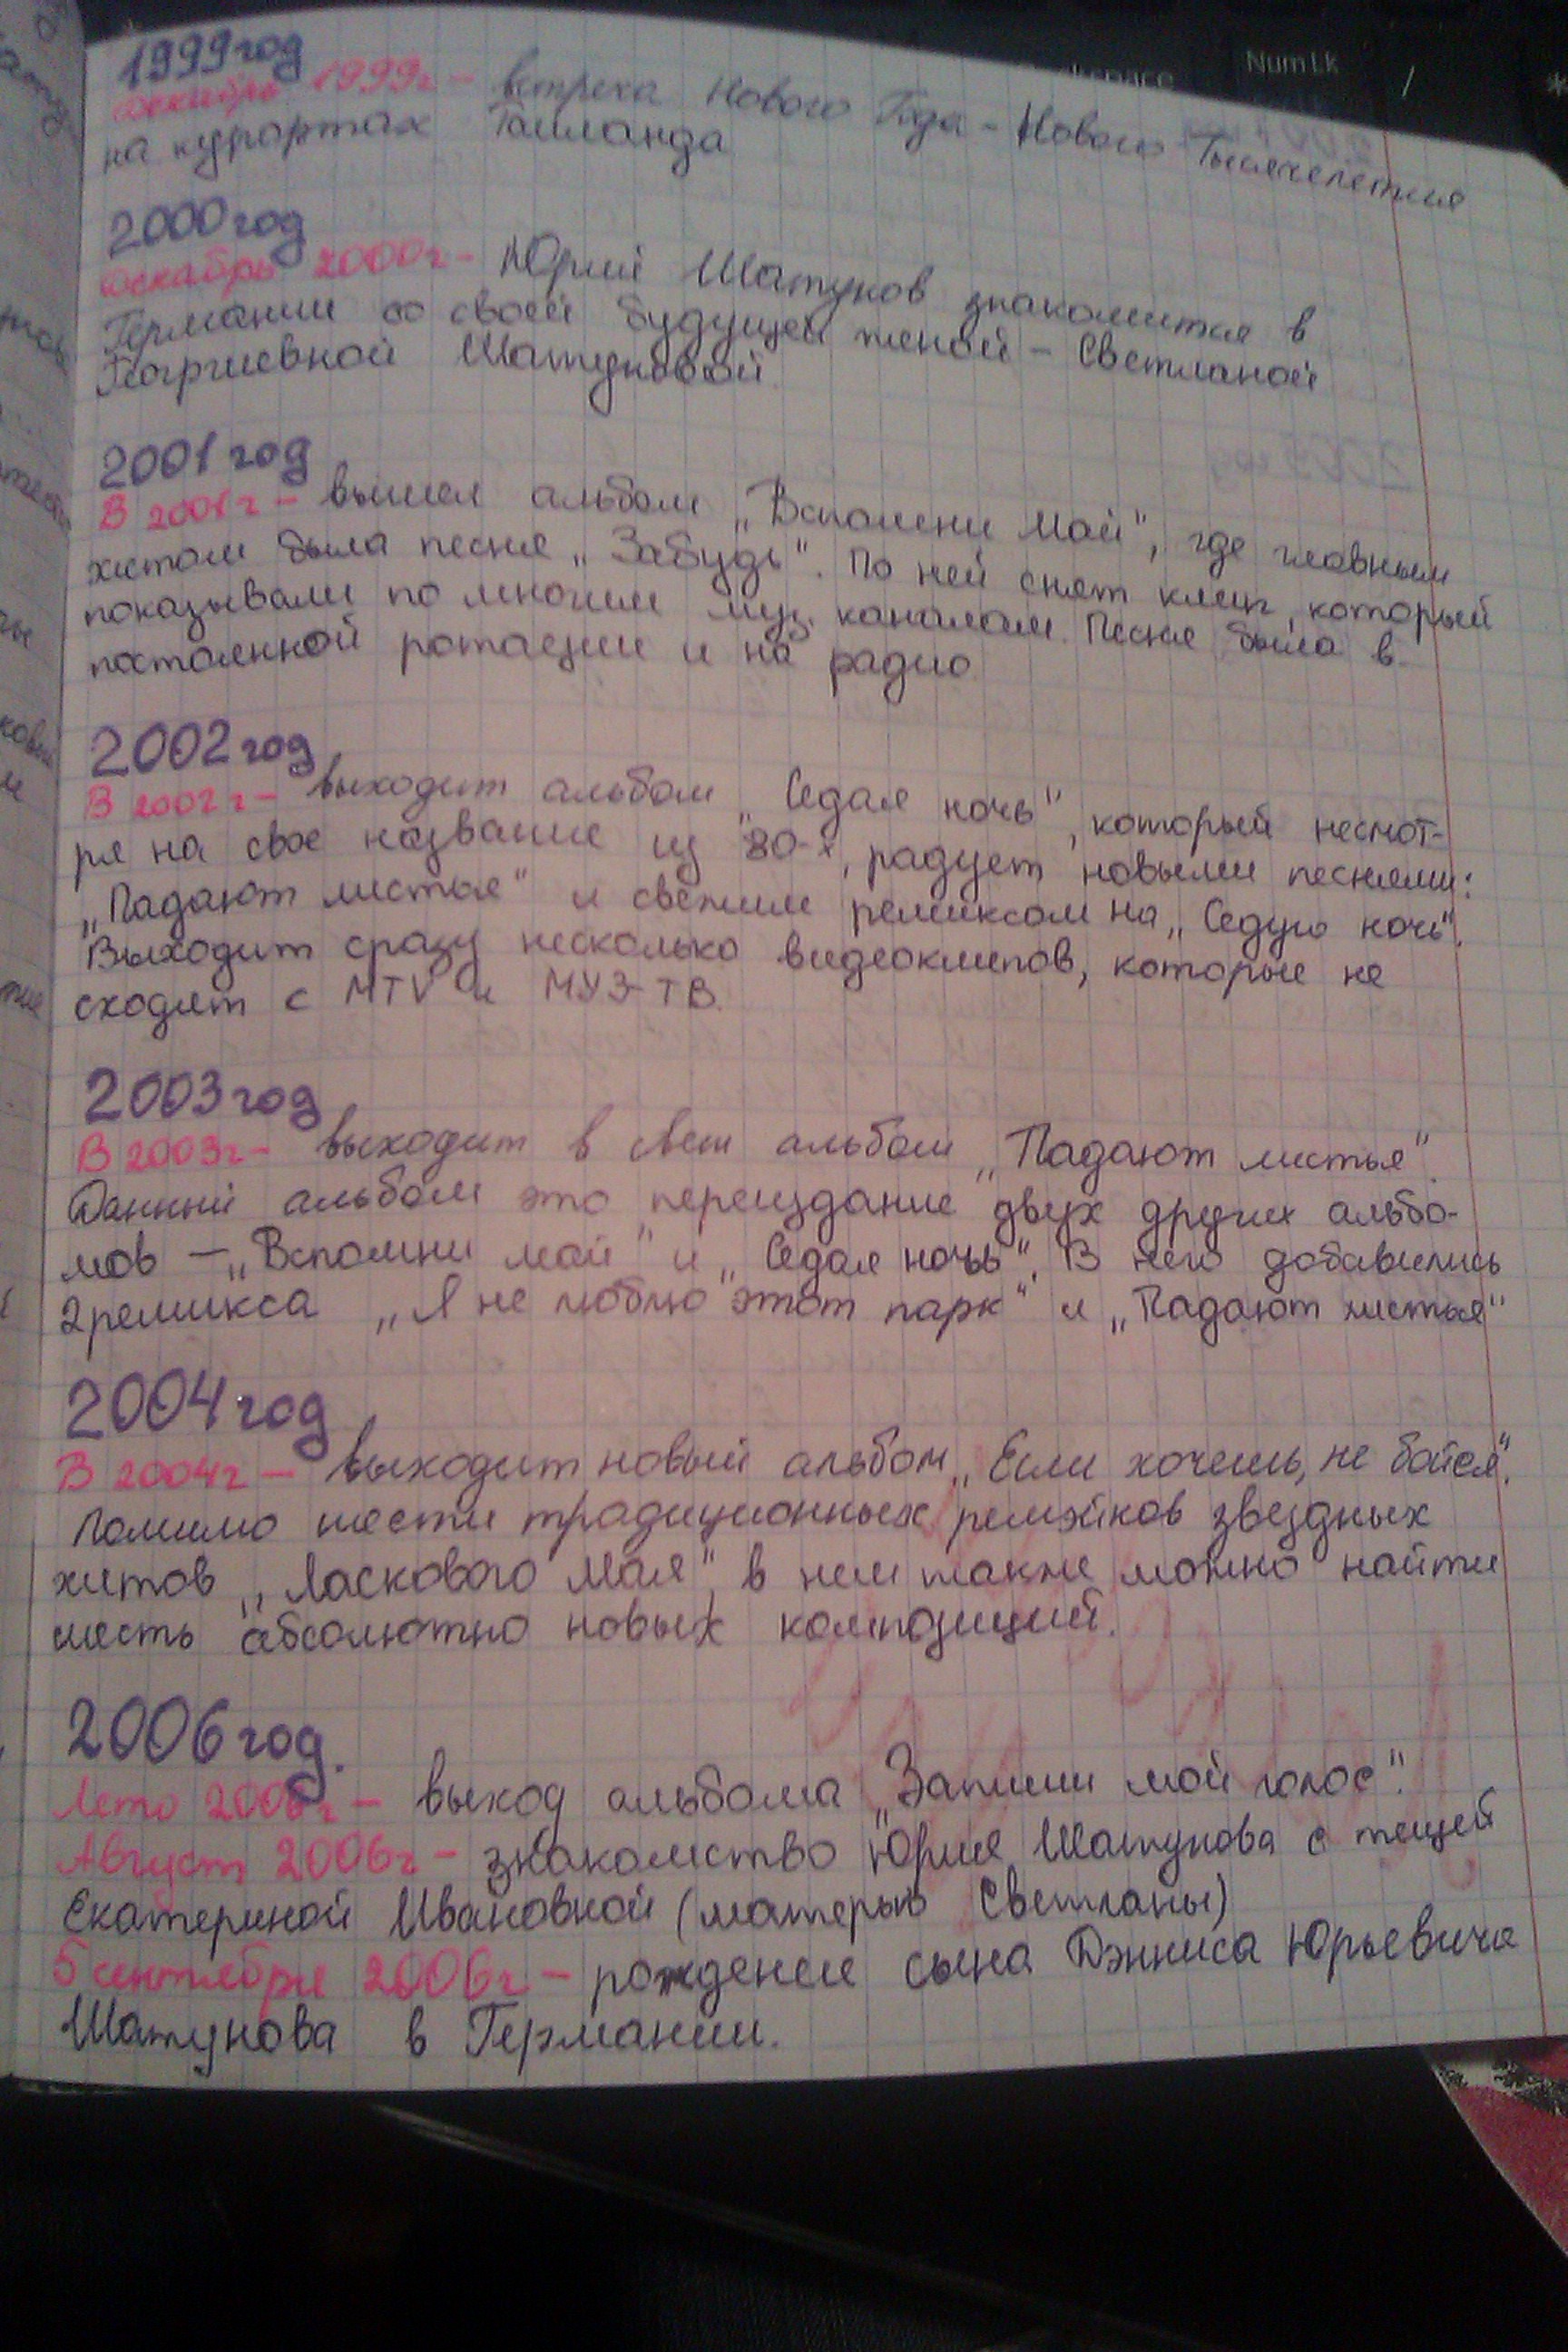 1999 год
декабрь 1999г - встреча Нового Года - Нового Тысячелетия
на курортах Таиланда
2000 год
декабрь 2000г - Юрий Шатунов знакомится в
Германии со своей будущей женой - Светланой
Георгиевной Шатуновой.
2001 год
В 2001г - вышел альбом „Вспомни Май", где главным
хитом была песня „Забудь". По ней снят клип, который
показывали по многим муз. каналам. Песня была в
постоянной ротации и на радио.
2002 год
В 2002г - выходит альбом „Седая ночь", который несмот-
ря на свое название из 80-х, радует новыми песнями:
„Падают листья" и свежим ремиксом на „Седую ночь".
Выходит сразу несколько видеоклипов, которые не
сходят с MTV и МУЗ-ТВ.
2003 год
В 2003г - выходит в свет альбом „Падают листья".
Данный альбом это переиздание двух других альбо-
мов - „Вспомни май" и „Седая ночь". В него добавились
2 ремикса „Я не люблю этот парк" и „Падают листья"
2004 год
В 2004г - выходит новый альбом „Если хочешь, не бойся".
Помимо шести традиционных ремэйков звездных
хитов „Ласкового Мая", в нем также можно найти
шесть абсолютно новых композиций.
2006 год.
Лето 2006г - выход альбома „Запиши мой голос".
Август 2006г - знакомство Юрия Шатунова с тещей
Екатериной Ивановной (матерью Светланы)
5 сентября 2006г - рождение сына Дэнниса Юрьевича
Шатунова в Германии.
NumLk
/
*